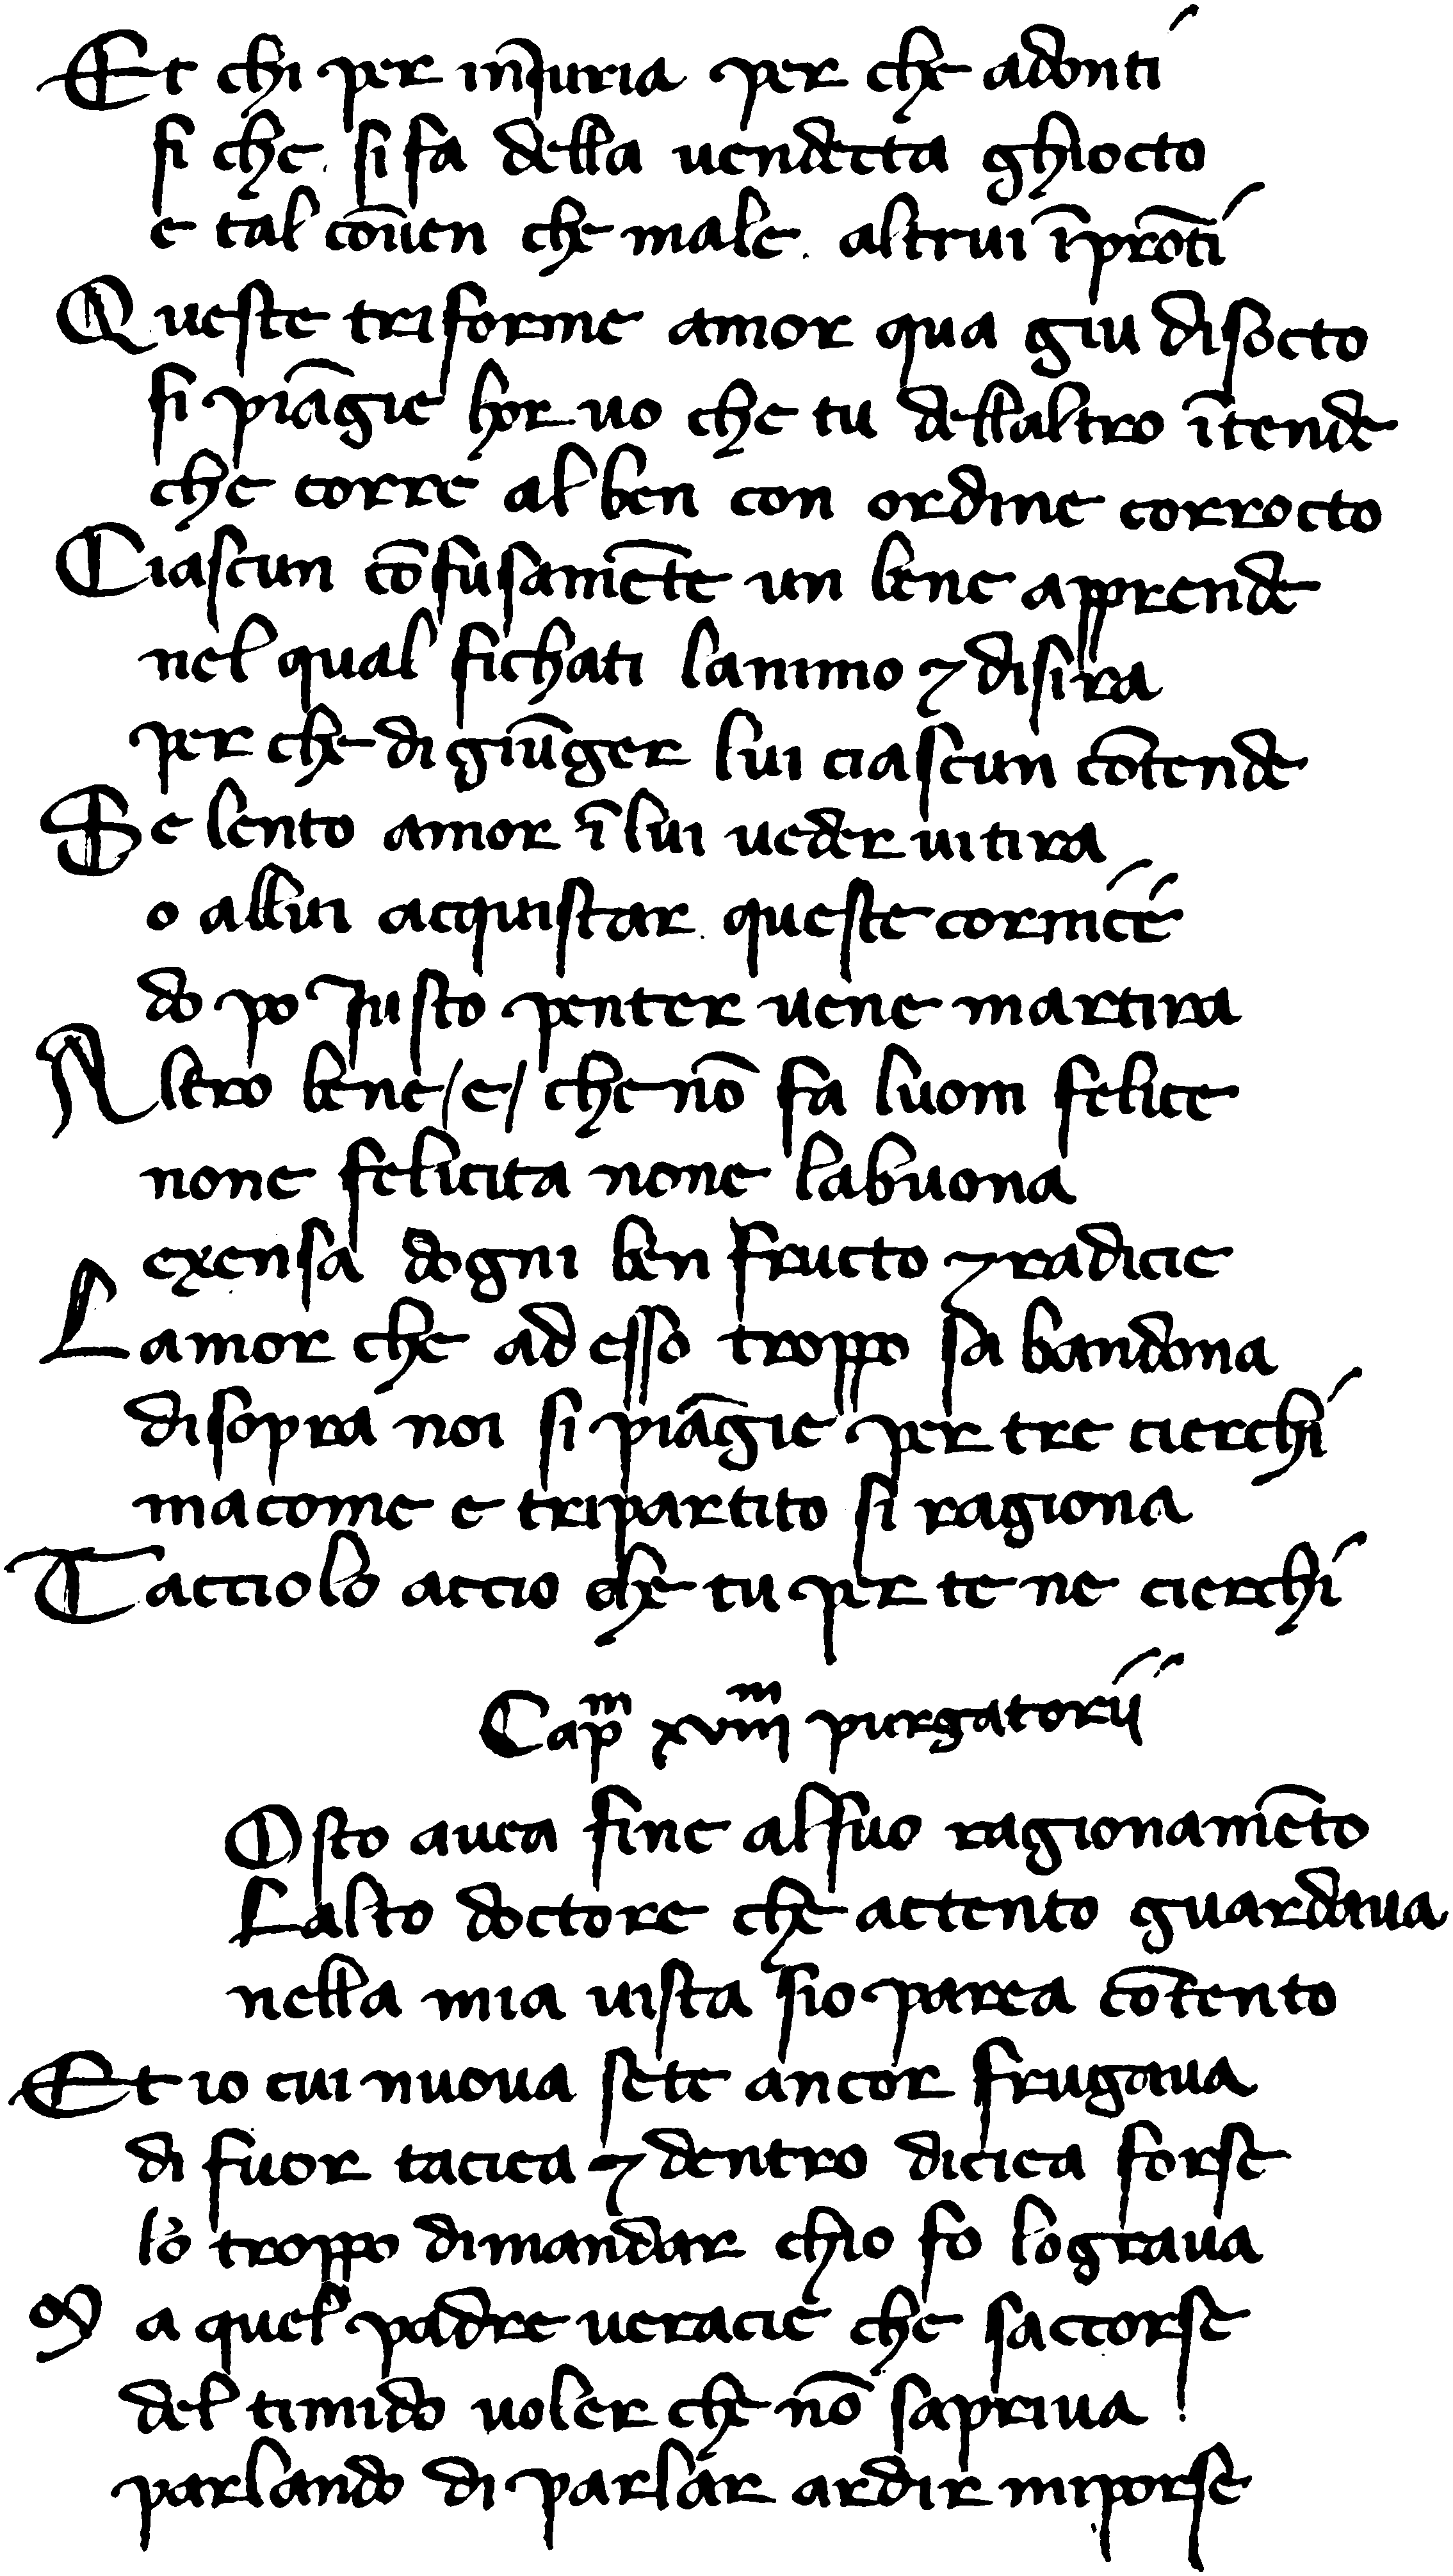 Et chi per inJuria per che adonti
si che. si fa della uendecta ghiocto
e tal cōuen che male. altrui īprōti
Queste triforme amor qua giu disocto
si piāgie hor uo che tu dellaltro ītende
che corre al ben con ordine corrocto
Ciascun cōfusamēte un bene apprende
nel qual sichati lanimo ⁊ disira
per che di giūger lui ciascun cōtende
Se lento amor ī lui ueder ui tira
o allui acquistar. queste cornice
do po Justo penter uene martira
Altro bene/e/ che nō fa luom felice
none felicita none labuona
exensa dogni ben fructo ⁊ radicie
Lamor che ad esso troppo sa bandona
disopra noi si piāgie per tre cierchi
macome e tripartito si ragiona
Tacciolo accio che tu per te ne cierchi
Capᵐ xviiiᵐ purgatorii
Osto auea fine alsuo ragionamēto
Lalto doctore che actento guardaua
nella mia uista sio parea cōtento
Et io cui nuoua sete ancor frugaua
di fuor taciea ⁊ dentro diciea forse
lo troppo dimandar chio fo lograua
Ma quel padre ueracie che saccorse
del timido uoler che nō sapriua
parlando di parlar ardir miporse